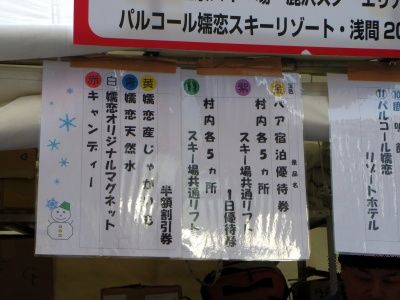 パルコール嬬恋スキーリゾート・浅間20
玉色
景品名
金
ペア宿泊優待券
紫
村内各5ヵ所
スキー場共通リフト
1日優待券
緑
村内各5ヵ所
スキー場共通リフト
半額割引券
黄
嬬恋産じゃがいも
青
嬬恋天然水
白
嬬恋オリジナルマグネット
赤
キャンディー
⑪パルコール嬬恋
リゾートホテル